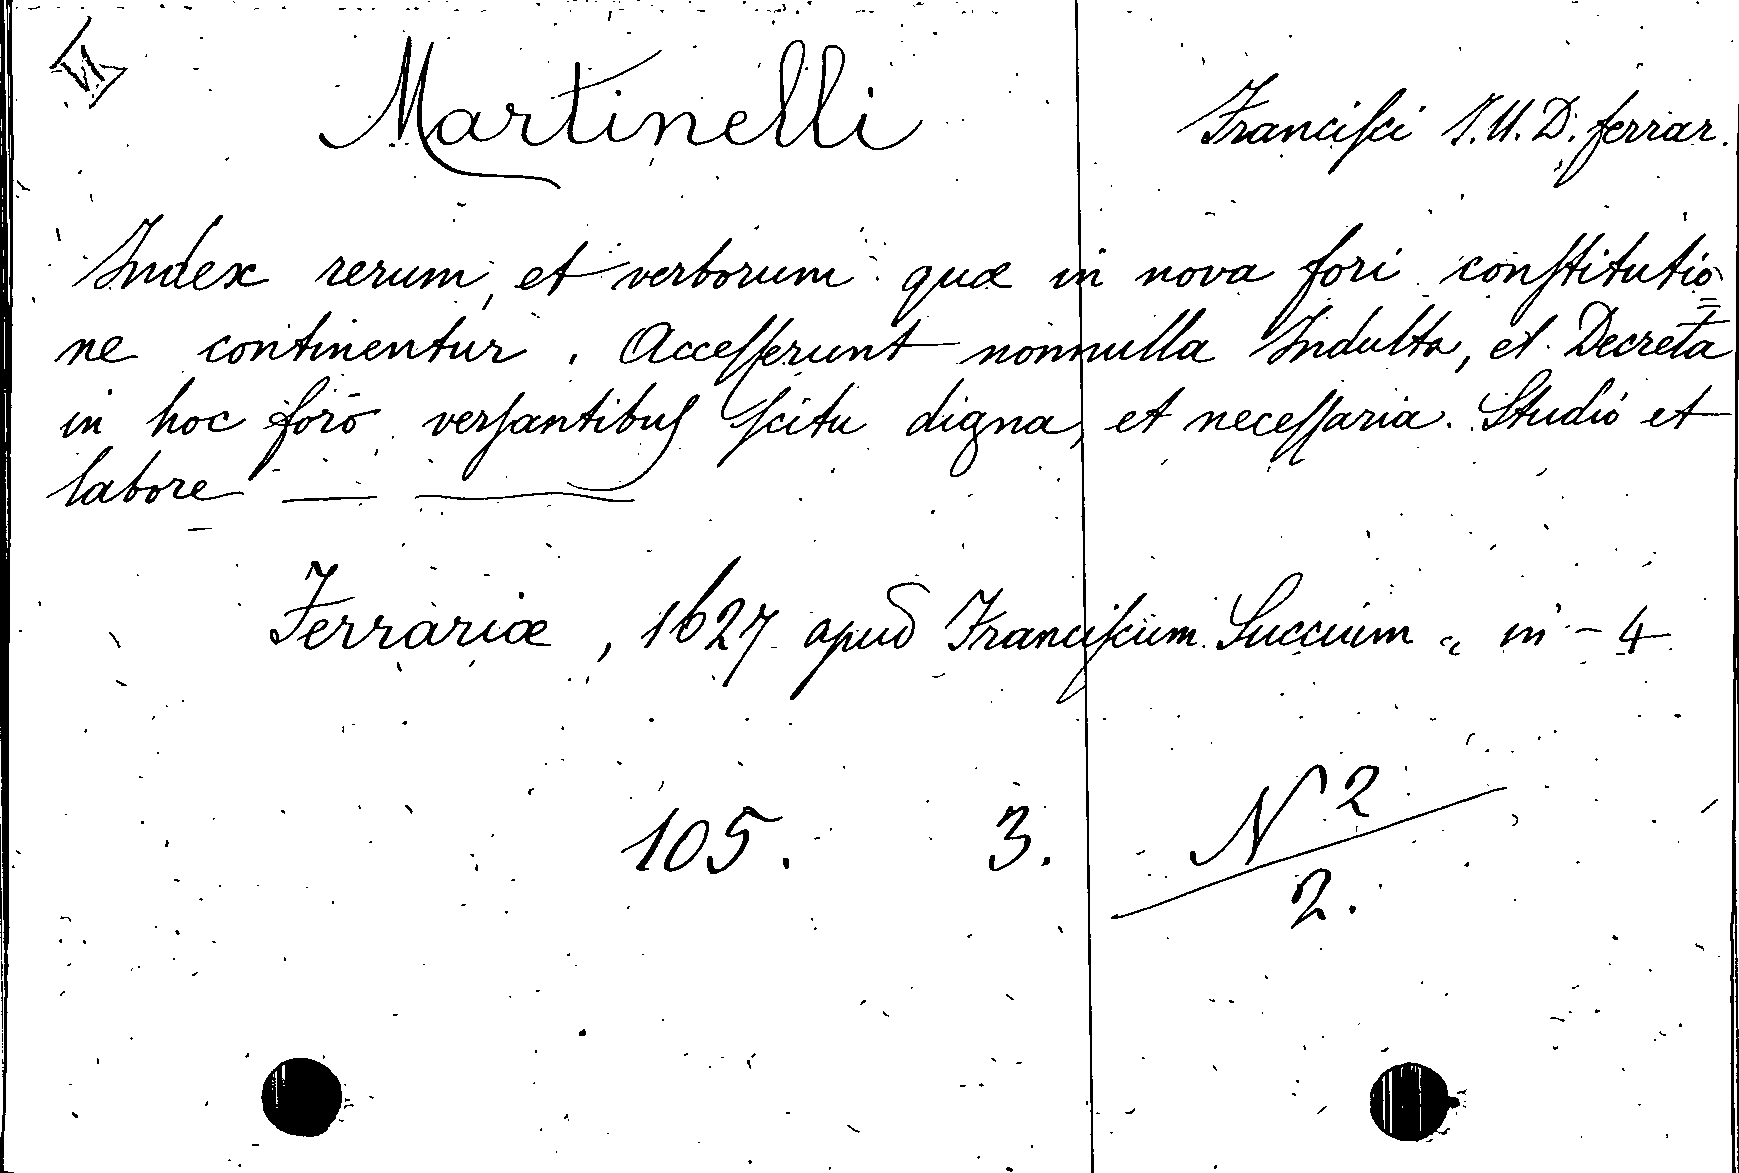 Martinelli Franciſci I.U.D. ferrar.
Index rerum, et verborum quæ in nova fori conſtitutio=
ne continentur. Acceſſerunt nonnulla Indulta, et Decreta
in hoc foro verſantibuſ ſcitu digna, et neceſſaria. Studio et
labore — —
Ferrariæ, 1627 apud Franciſcum Succium „ in - 4
105. 3. N 2
2.